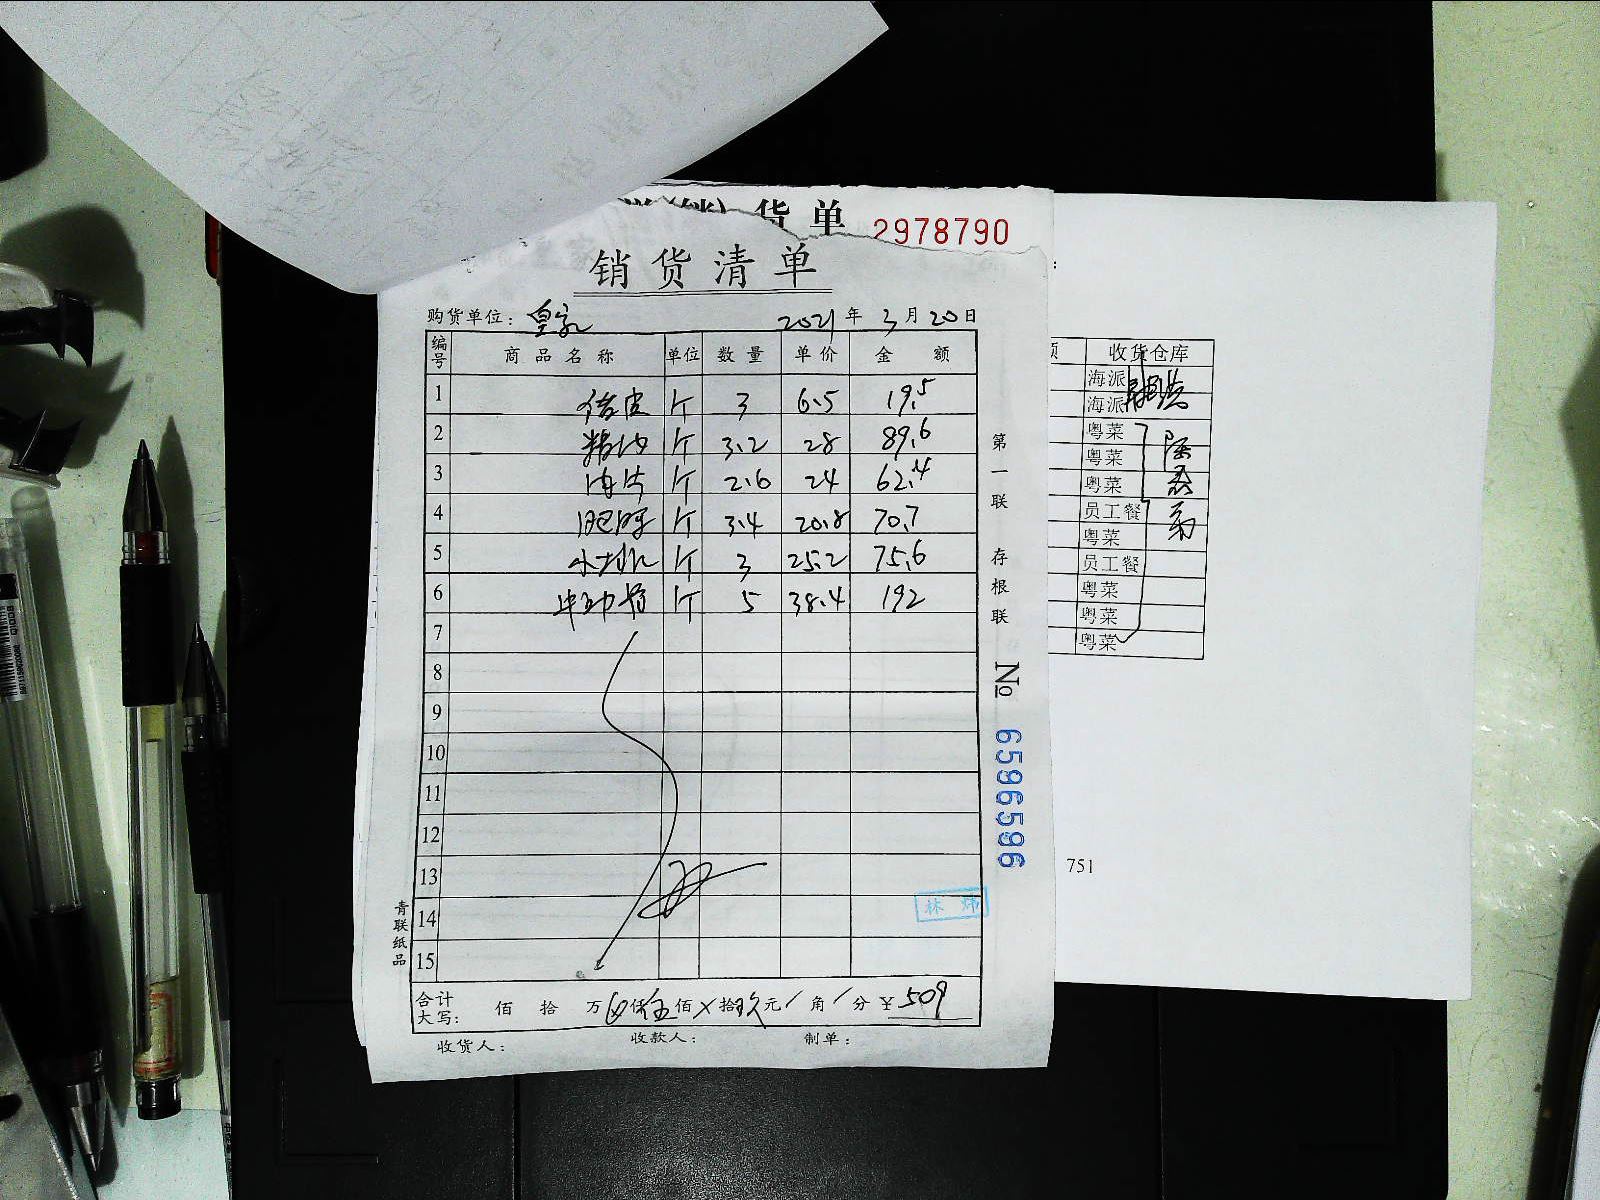 货单 2978790
销货清单
购货单位：皇家 2021年3月20日
编号 商品名称 单位 数量 单价 金额
1 猪皮 斤 3 6.5 19.5
2 精肉 斤 3.2 28 89.6
3 肉片 斤 2.6 24 62.4
4 斤 3.4 20.8 70.7
5 小排 斤 3 25.2 75.6
6 斤 5 38.4 192
7
8
9
10
11
12
13
14
15
合计大写： 佰 拾 万 仟伍佰 拾玖元 角 分 ¥509
收货人： 收款人： 制单：
第一联 存根联
No 6596596
青联纸品
林炜
收货仓库
海派
海派
粤菜
粤菜
粤菜
员工餐
粤菜
员工餐
粤菜
粤菜
粤菜
751